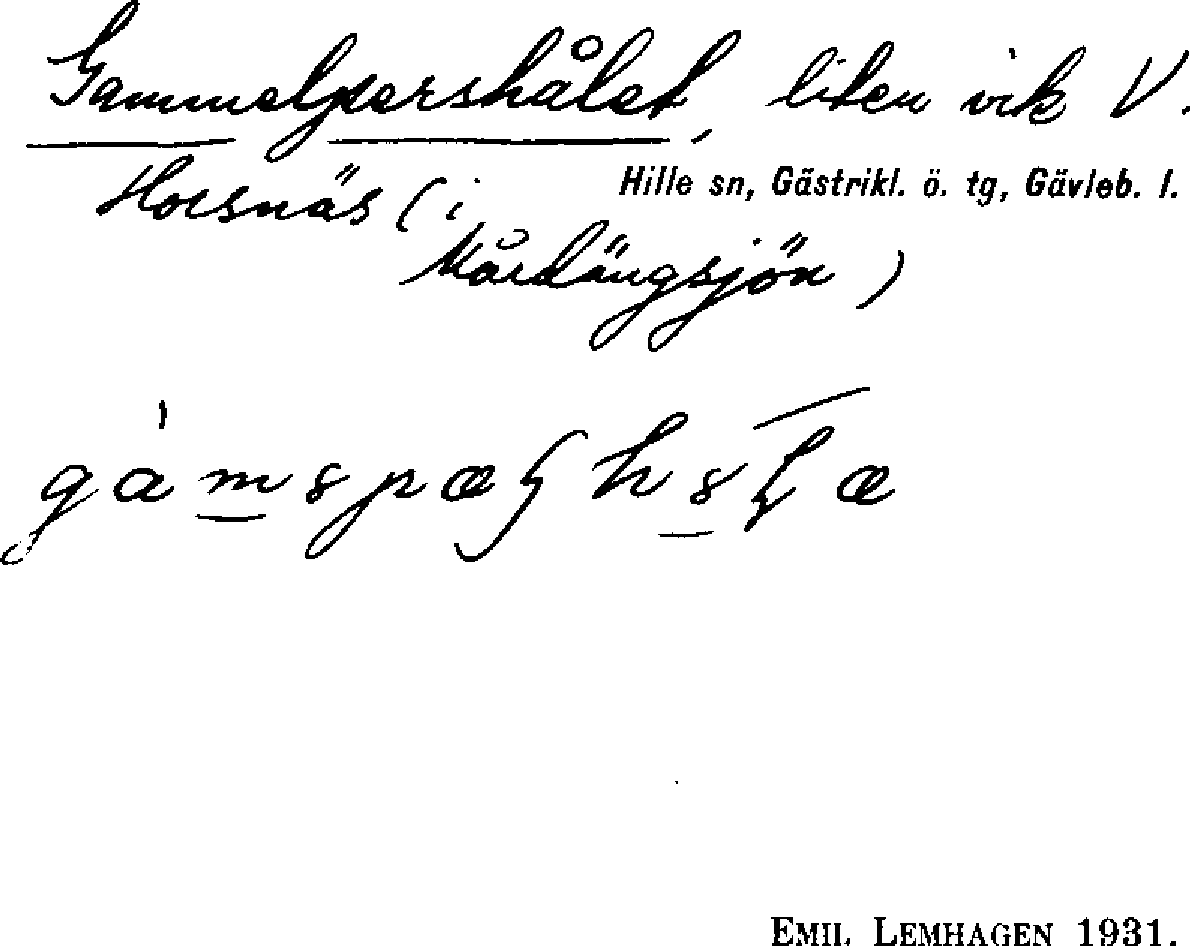 Gammelpershålet, liten vik V.
Horsnäs (i
Hille sn, Gästrikl. ö. tg, Gävleb. l.
Mårdängsjön)
EMIL LEMHAGEN 1931.